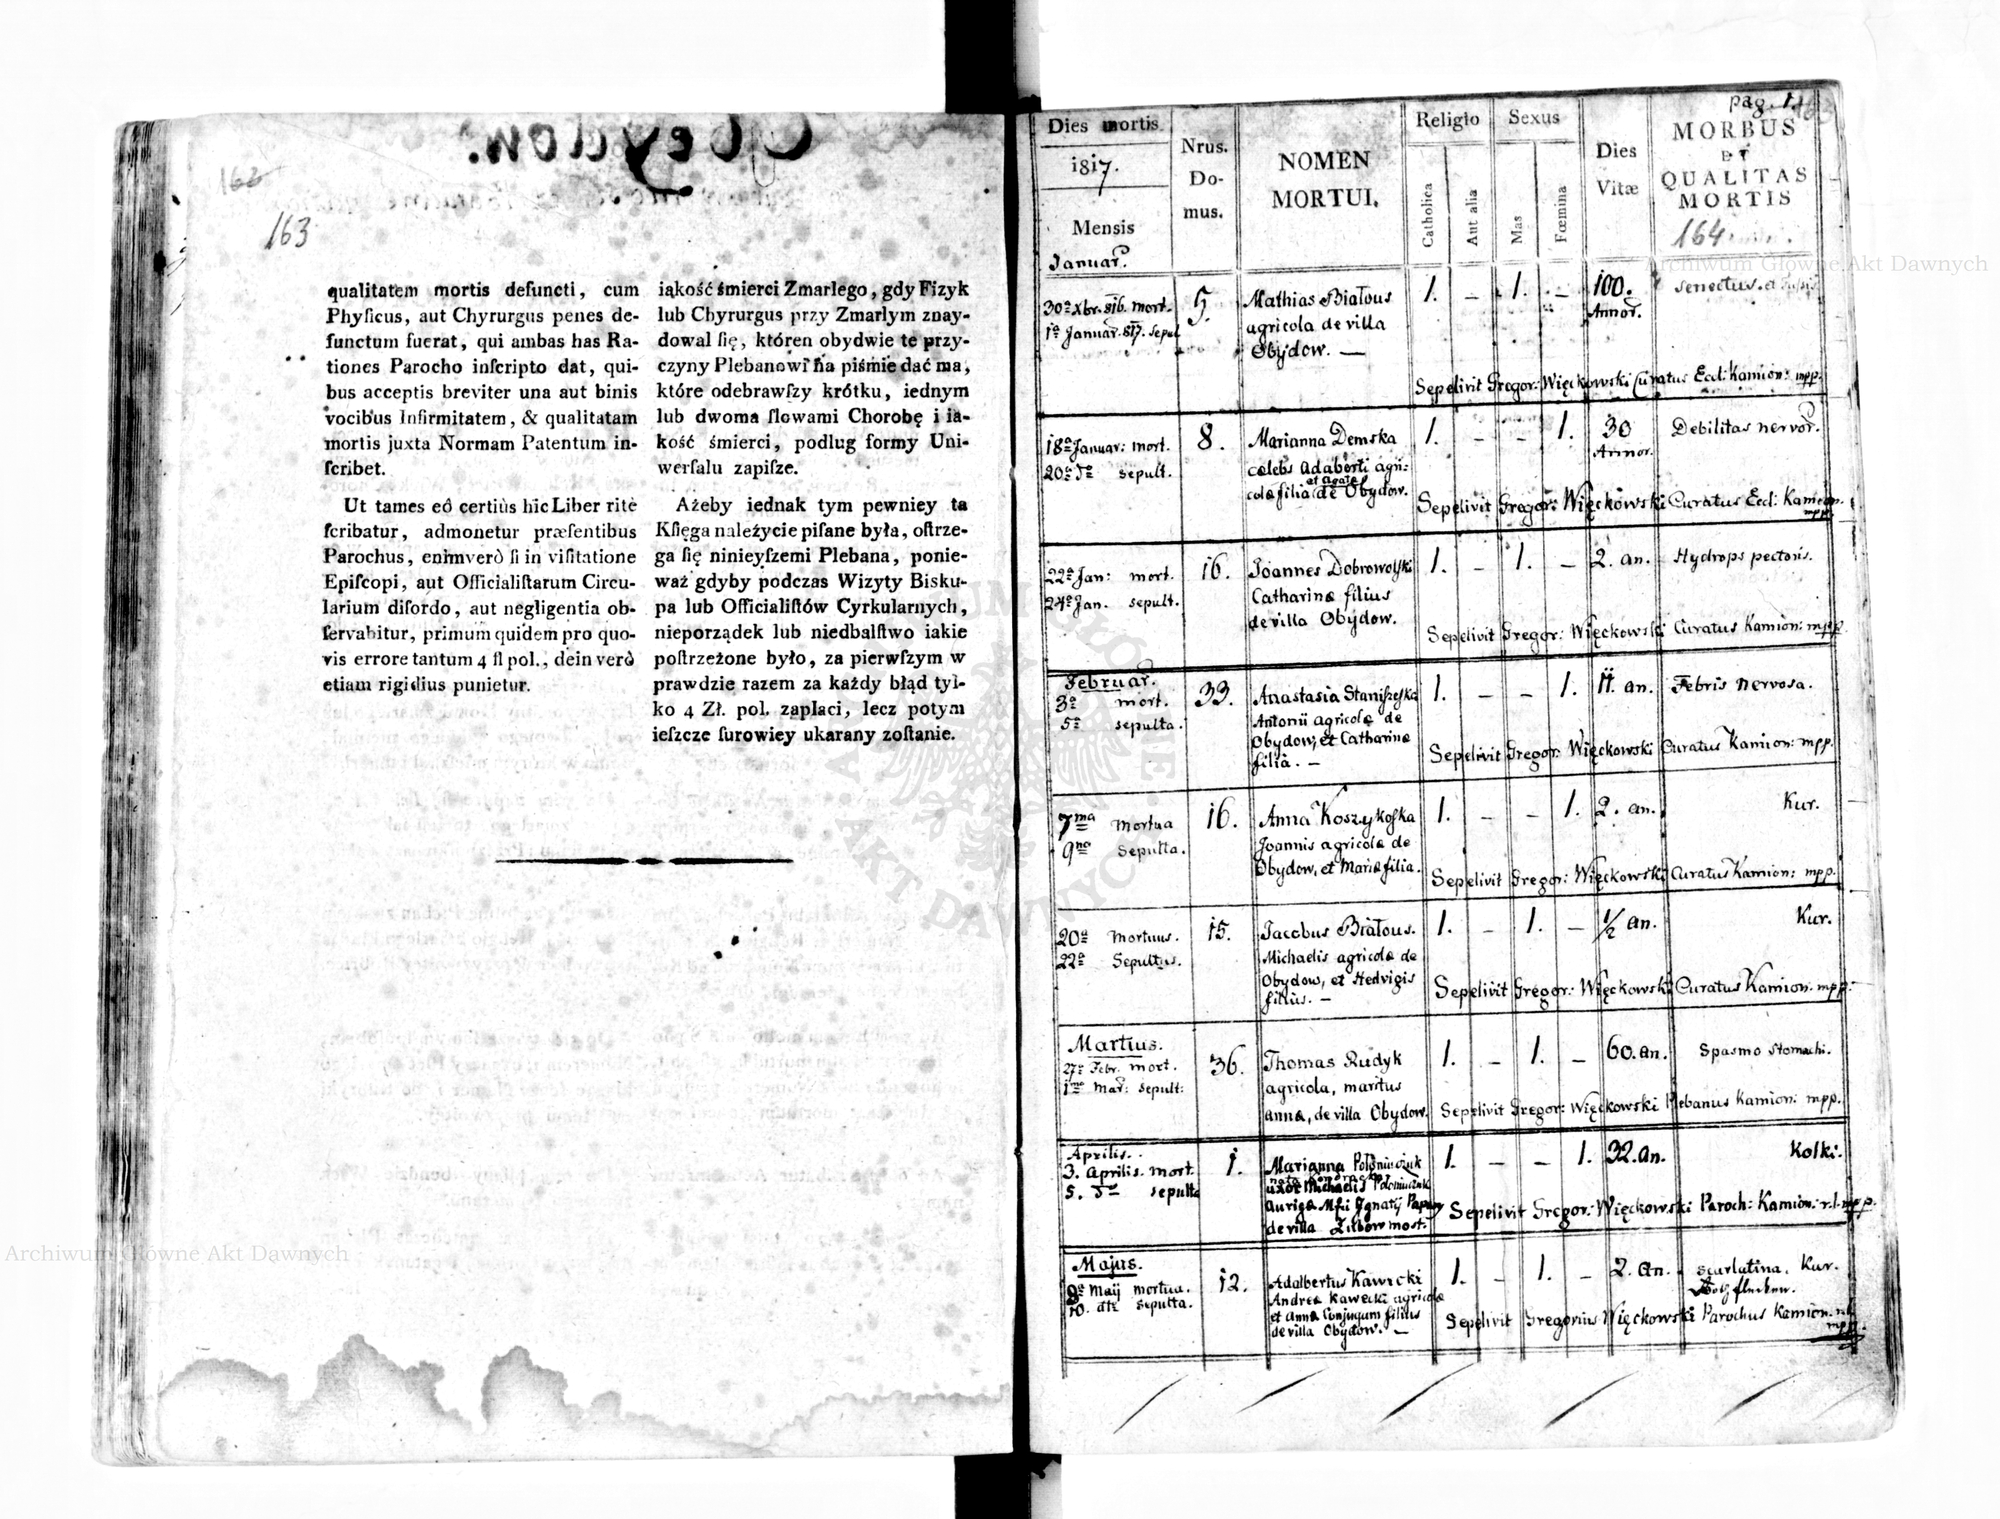 Obeydow.
162
163
qualitatem mortis defuncti, cum
Phyſicus, aut Chyrurgus penes de-
functum fuerat, qui ambas has Ra-
tiones Parocho inſcripto dat, qui-
bus acceptis breviter una aut binis
vocibus Infirmitatem, & qualitatam
mortis juxta Normam Patentum in-
ſcribet.
Ut tames eô certiùs hic Liber ritè
ſcribatur, admonetur præſentibus
Parochus, enimverò ſi in viſitatione
Epiſcopi, aut Officialiſtarum Circu-
larium diſordo, aut negligentia ob-
ſervabitur, primum quidem pro quo-
vis errore tantum 4 fl pol., dein verò
etiam rigidius punietur.
iąkość śmierci Zmarłego, gdy Fizyk
lub Chyrurgus przy Zmarłym znay-
dował ſię, któren obydwie te przy-
czyny Plebanowi na piśmie dać ma,
które odebrawſzy krótku, iednym
lub dwoma ſłowami Chorobę i ia-
kość śmierci, podług formy Uni-
werſału zapiſze.
Ażeby iednak tym pewniey ta
Kſięga należycie piſane była, oſtrze-
ga ſię ninieyſzemi Plebana, ponie-
waż gdyby podczas Wizyty Biſku-
pa lub Officialiſtów Cyrkularnych,
nieporządek lub niedbalſtwo iakie
poſtrzeżone było, za pierwſzym w
prawdzie razem za każdy błąd tyl-
ko 4 Zł. pol. zapłaci, lecz potym
ieſzcze ſurowiey ukarany zoſtanie.
pag. 1.
Dies mortis
1817.
Mensis
Januar.
Nrus.
Do-
mus.
NOMEN
MORTUI.
Religio
Catholica
Aut alia
Sexus
Mas
Fœmina
Dies
Vitæ
MORBUS
ET
QUALITAS
MORTIS
164
30ª Xbr. 816. mort.
1ª Januar. 817. sepul
5.
Mathias Białous
agricola de villa
Obydow. —
1. – 1. –
100.
Annor.
Senectus. et
Sepelivit Gregor: Więckowski Curatus Eccl: Kamion: mpp.
18ª Januar: mort.
20ª do sepult.
8.
Marianna Demska
cœlebs Adalberti agri:
et Agatæ
colæ filia de Obydow.
1. – – 1.
30
Annor.
Debilitas nervor.
Sepelivit Gregor: Więckowski Curatus Eccl: Kamion.
mpp.
22ª Jan: mort.
24ª Jan. sepult.
16.
Joannes Dobrowolski
Catharinæ filius
de villa Obydow.
1. – 1. –
2. an.
Hydrops pectoris.
Sepelivit Gregor: Więckowski Curatus Kamion: mpp
Februar.
3ª mort.
5ª sepulta.
33.
Anastasia Staniszeſka
Antonii agricolæ de
Obydow, et Catharinæ
filia. —
1. – – 1.
11. an.
Febris nervosa.
Sepelivit Gregor: Więckowski Curatus Kamion: mpp.
7ma mortua
9na Sepulta.
16.
Anna Koszykoſka
Joannis agricolæ de
Obydow, et Mariæ filia.
1. – – 1.
2. an.
Kur.
Sepelivit Gregor: Więckowski Curatus Kamion: mpp.
20ª Mortuus.
22ª Sepultus.
15.
Jacobus Białous.
Michaelis agricolæ de
Obydow, et Hedvigis
filius. —
1. – 1. –
1/2 an.
Kur.
Sepelivit Gregor: Więckowski Curatus Kamion: mpp.
Martius.
27ª Febr. mort.
1ma Mar: sepult:
36.
Thomas Rudyk
agricola, maritus
Annæ, de villa Obydow.
1. – 1. –
60. an.
Spasmo stomachi.
Sepelivit Gregor: Więckowski Plebanus Kamion: mpp.
Aprilis.
3. Aprilis. mort.
5. do sepulta
1.
Marianna
nata
uxor Michaelis
aurigæ Mfci Ignatij
de villa Żubow most.
1. – – 1.
32. an.
Kolki.
Sepelivit Gregor: Więckowski Paroch: Kamion: r.l. mpp.
Majus.
8ª Maij mortua.
10. dtt sepulta.
12.
Adalbertus Kawecki
Andreæ Kawecki agricolæ
et Annæ Conjugum filius
de villa Obydow. —
1. – 1. –
2. an.
Scarlatina. Kur.
Rothflecken.
Sepelivit Gregorius Więckowski Parochus Kamion. r.l.
mpp.
Archiwum Główne Akt Dawnych
Archiwum Główne Akt Dawnych